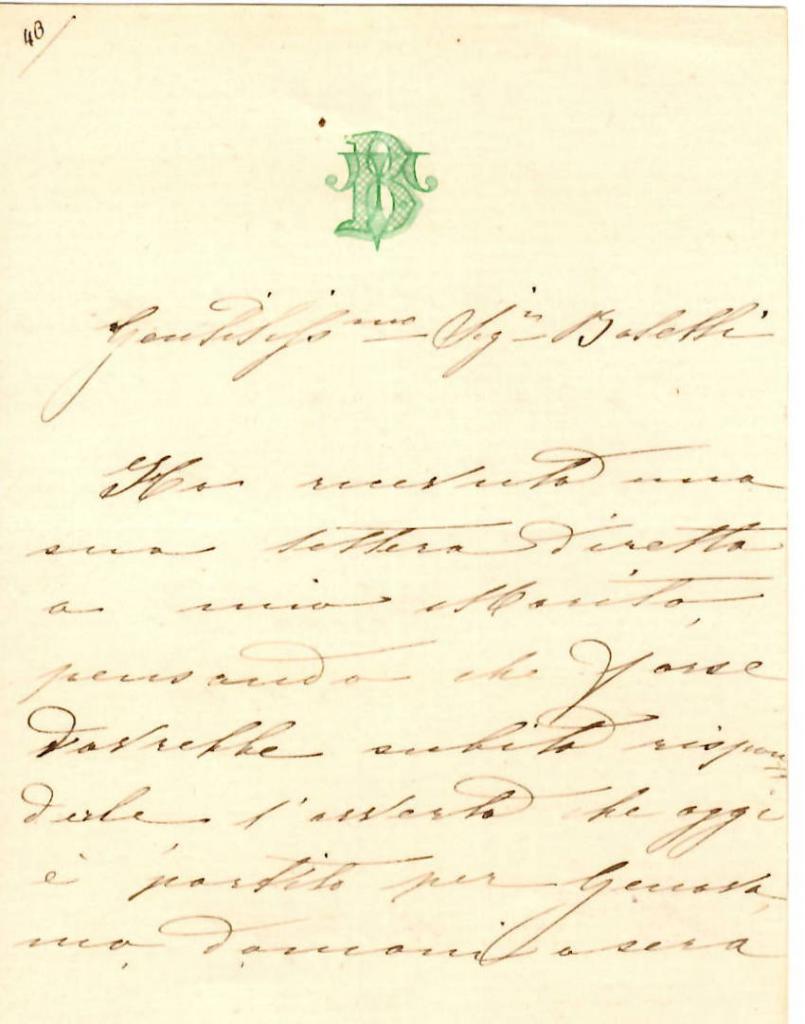 40
Gentilissmo Sign Boselli
Ho ricevuto una
sua lettera diretta
a mio Marito,
pensando che forse
dovrebbe subito rispon
derle l'avverto che oggi
è partito per Genova,
ma domani a sera